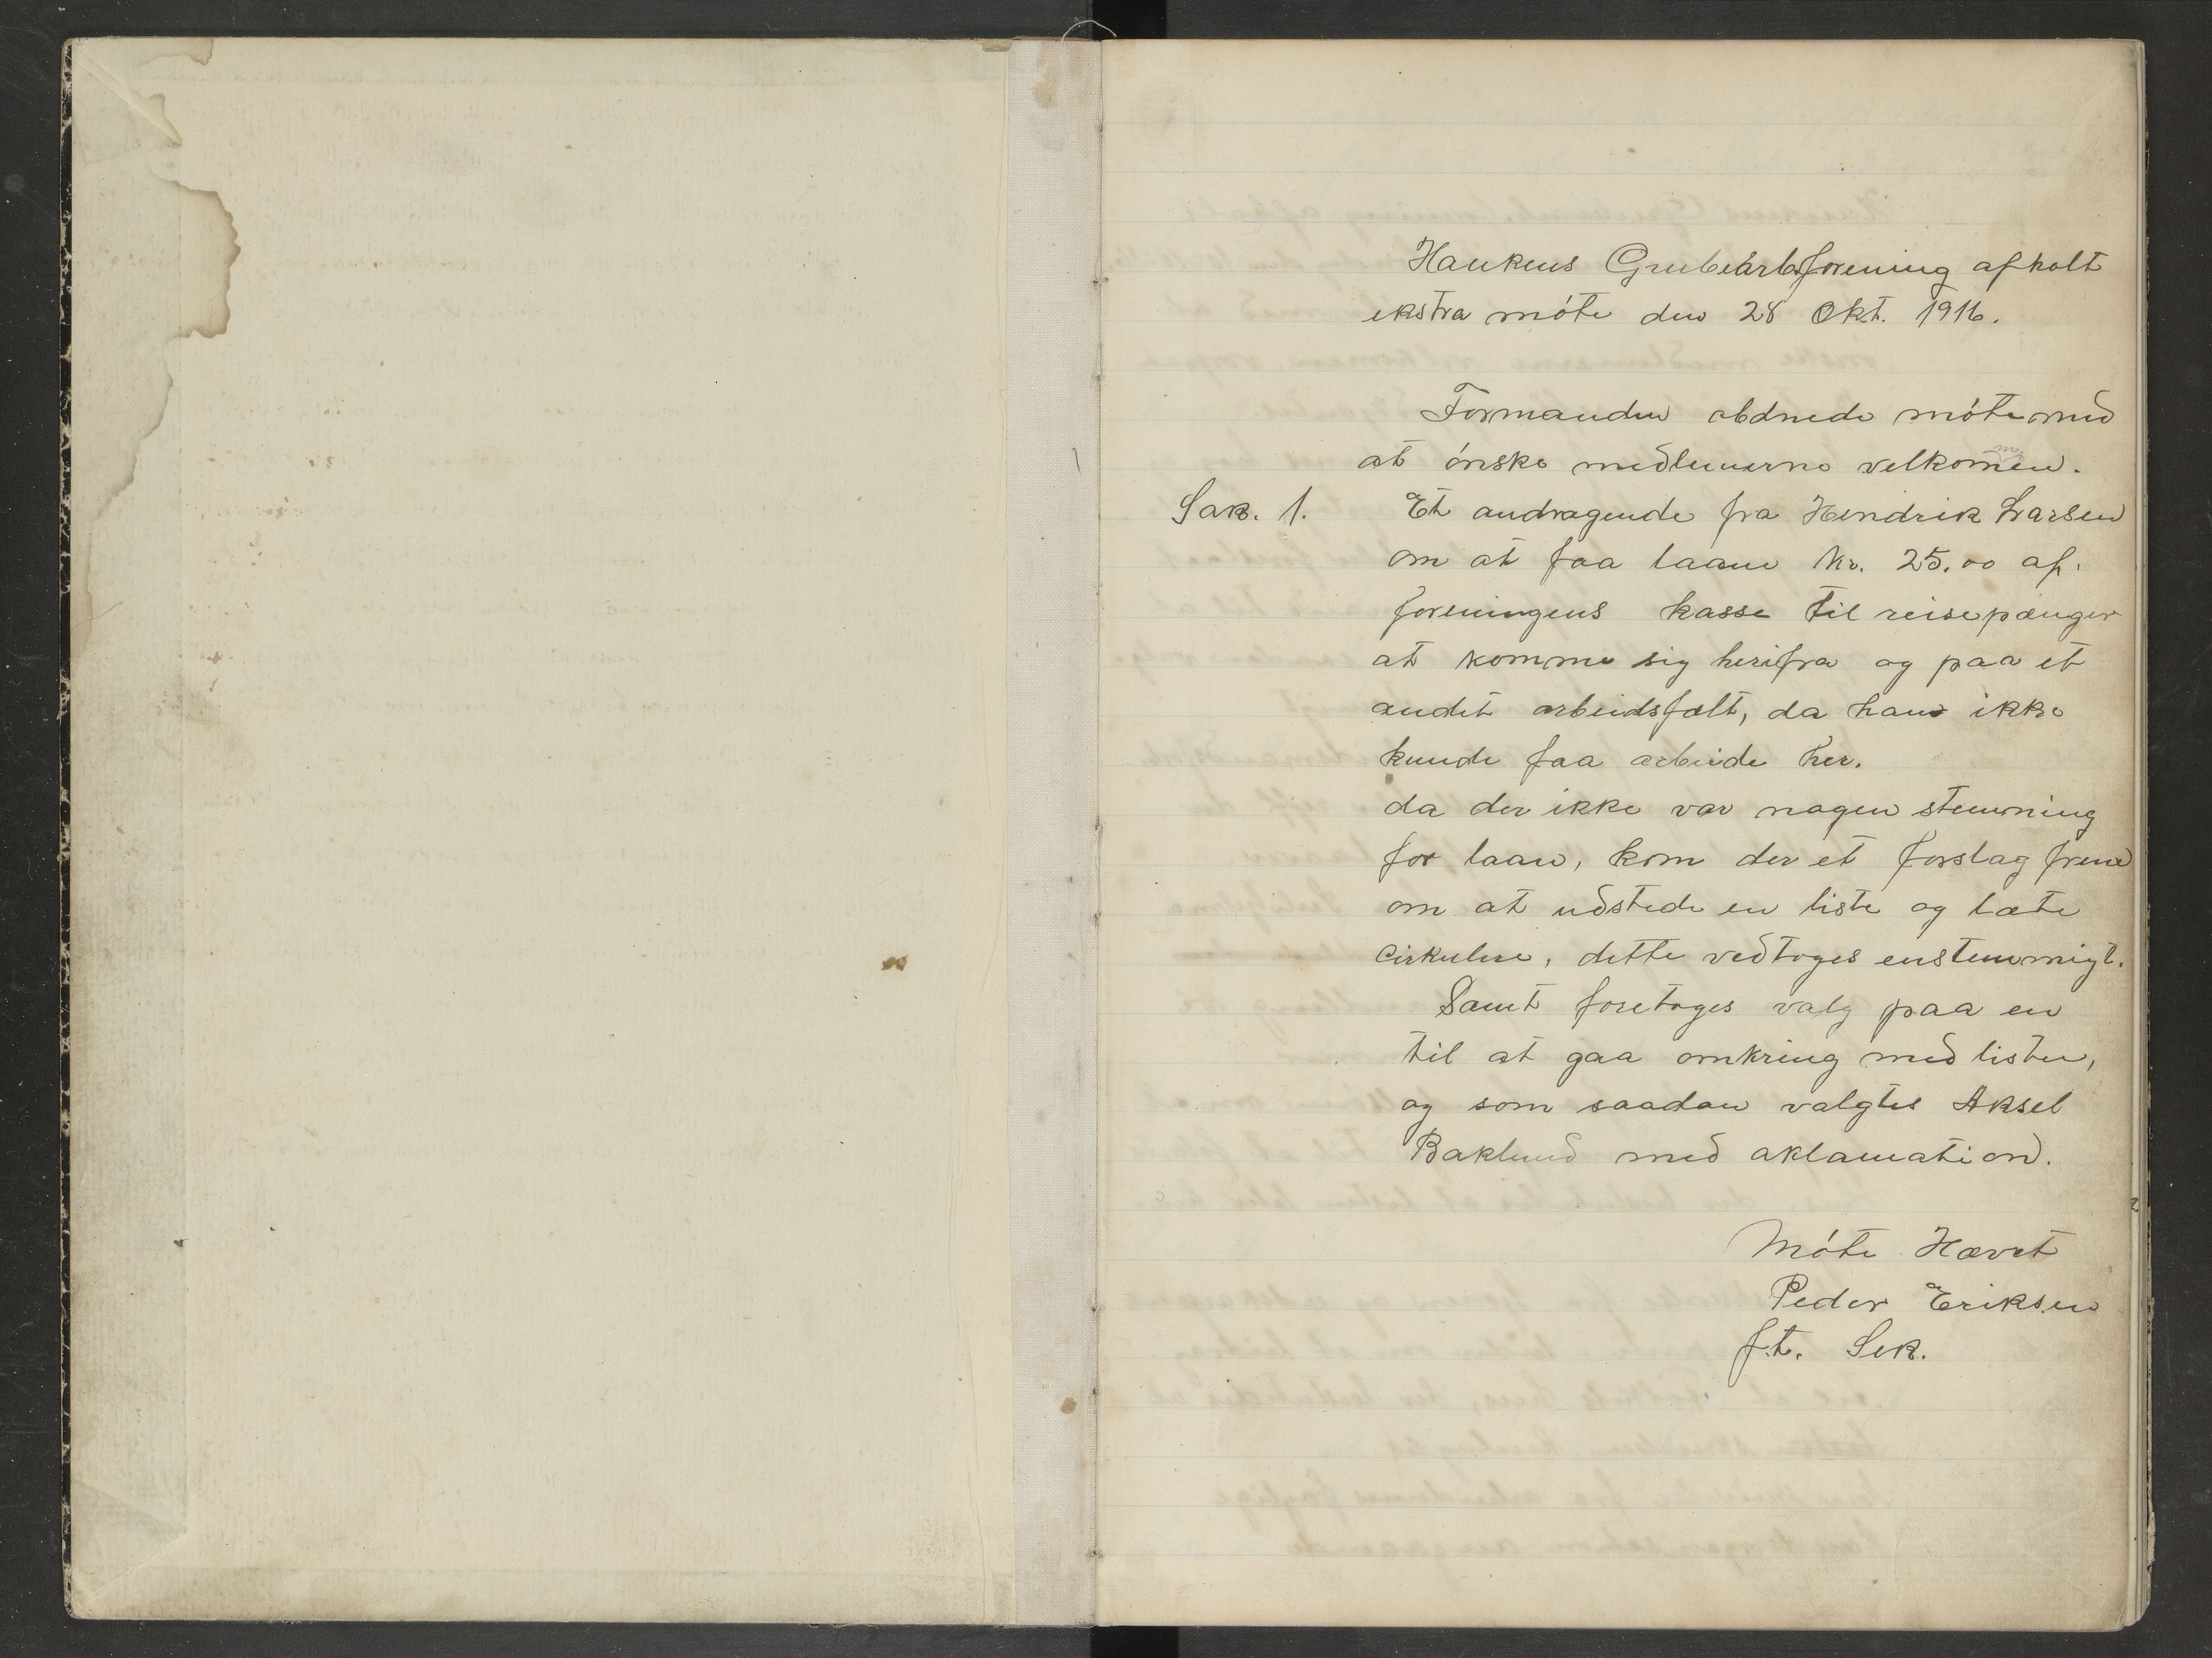 Haukens Grubearb.forening afholt
ekstra móte den 28 Okt. 1916.
Formanden abdnede móte med
at ónske medlemerne velkomen.
Sak. 1. Et andragende fra Hendrik Larsen
om at faa laane kr. 25.00 af.
foreningens kasse til reisepænger
at komme sig herifra og paa et
andet arbeidsfælt, da han ikke
kunde faa arbeide her.
da der ikke var nagen stemning
for laan, kom der et forslag frem
om at udstede en liste og læte
cirkulere, dette vedtoges enstemmigt.
Samt foretoges valg paa en
til at gaa omkring med listen,
og som saadan valgtes Aksel
Baklund med aklamation.
Móte Hævet
Peder Eriksen
f.t. Sek.